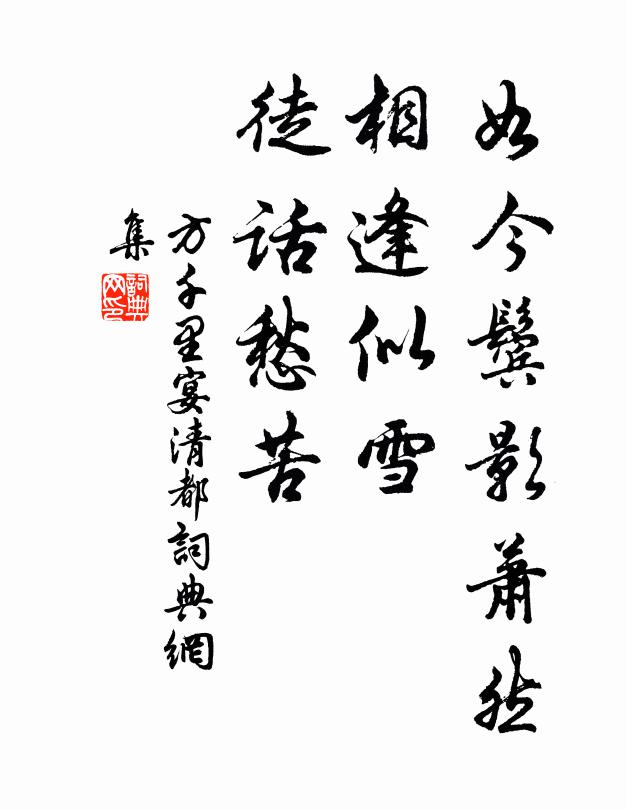 如今鬓影萧然
相逢似雪
徒話愁苦
方千里宴清都詞典網
集
詞典
网印